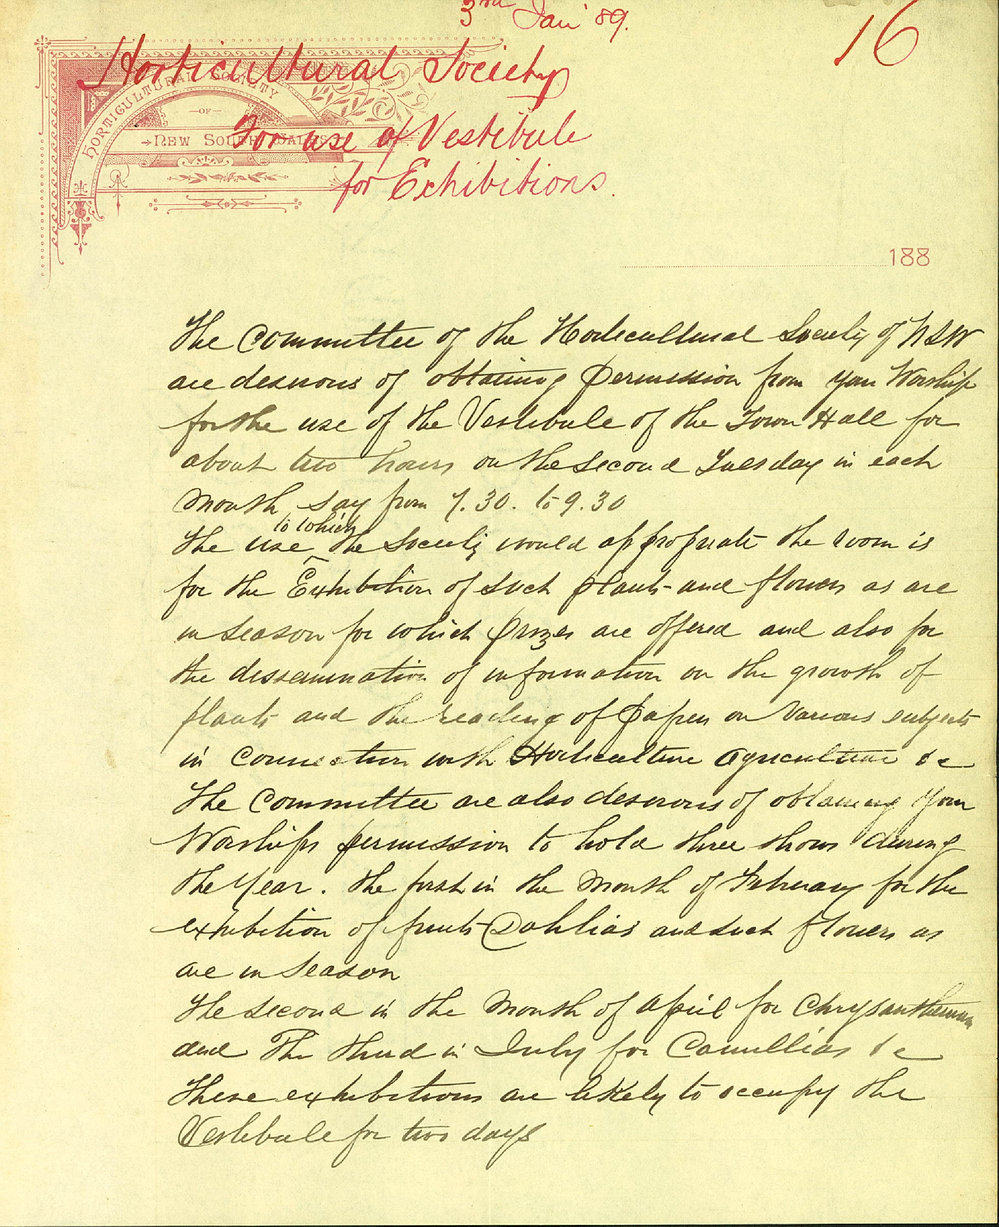 3rd Jan '89.
16
Horticultural Society
HORTICULTURAL SOCIETY
OF
NEW SOUTH WALES
For use of Vestibule
for Exhibitions.
188
The Committee of the Horticultural Society of NSW
are desirous of obtaining permission from your Worship
for the use of the Vestibule of the Town Hall for
about two hours on the Second Tuesday in each
Month, say from 7.30. to 9.30
to which
The use ^ the Society would appropriate the room is
for the Exhibition of such plants and flowers as are
in Season for which prizes are offered and also for
the dissemination of information on the growth of
plants and the reading of Papers on Various subjects
in Connection with Horticulture Agriculture &c
The Committee are also desirous of obtaining Your
Worships permission to hold three shows during
the Year. The first in the Month of February for the
exhibition of fruits Dahlias and such flowers as
are in Season
The Second in the Month of April for Chrysanthemum
and The third in July for Camellias &c
These exhibitions are likely to occupy the
Vestibule for two days